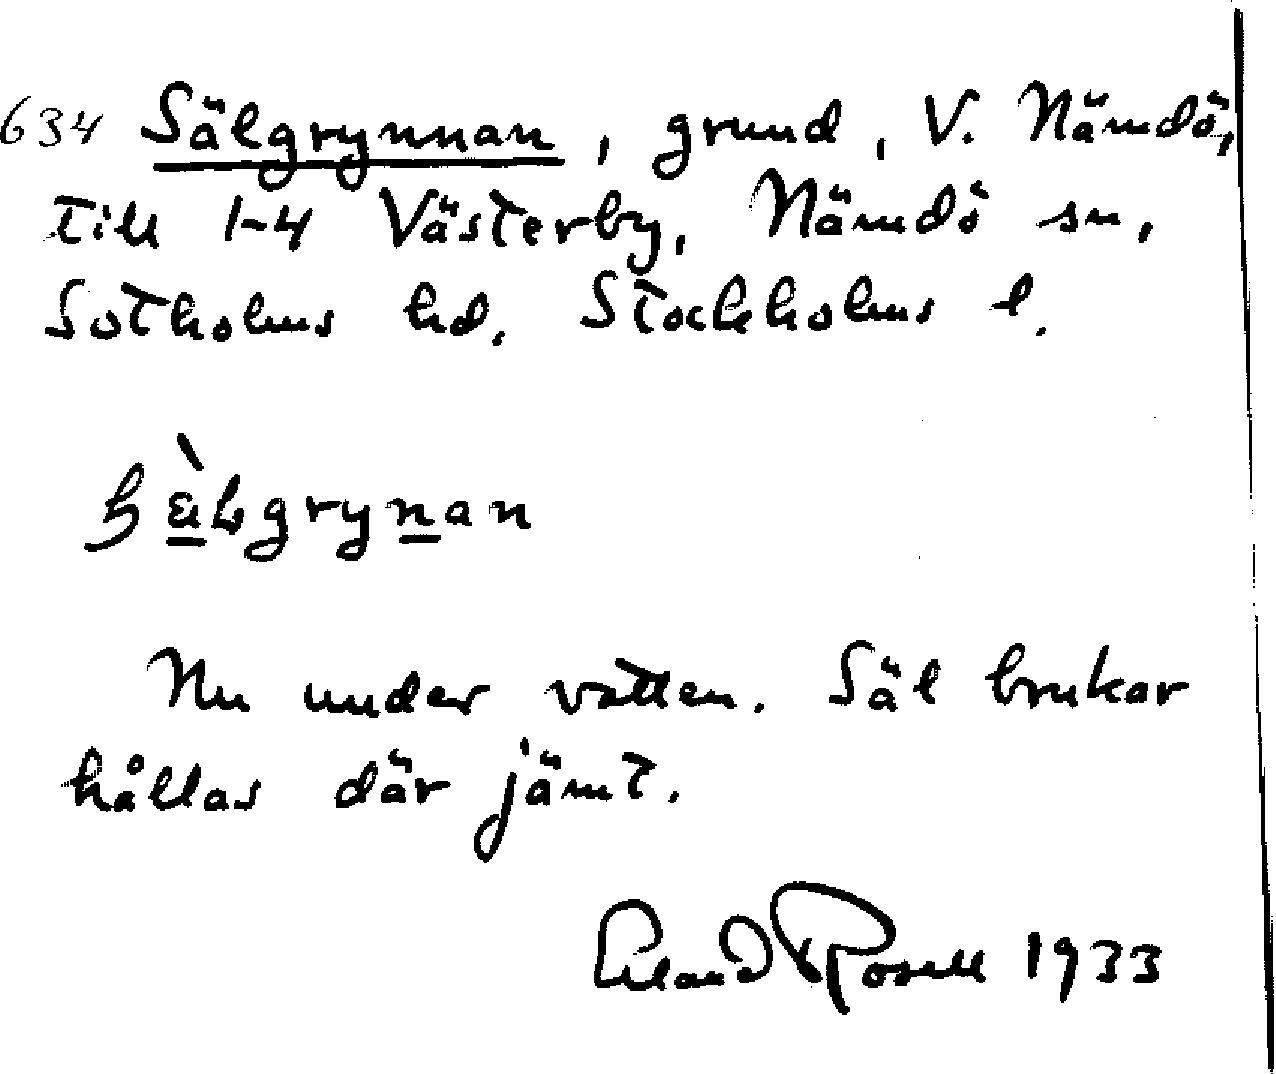 634 Sälgrynnan, grund, V. Nämdö,
till 1-4 Västerby, Nämdö sn,
Sotholms hd. Stockholms l.
Nu under vatten. Säl brukar
hållas där jämt.
Erland Rosell 1933